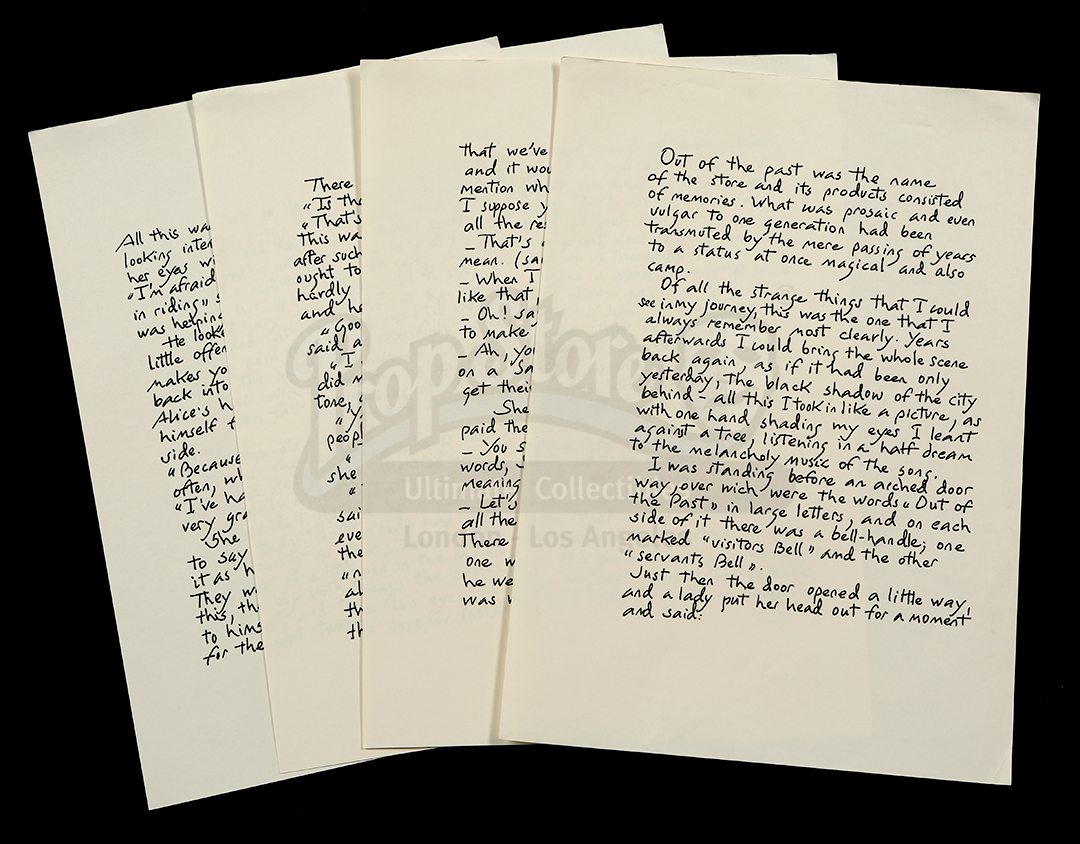 All this wa
looking inter
her eyes wi
"I'm afraid
in riding" s
was helping
He look
little offen
makes yo
back into
Alice's h
himself t
side.
"Because
often, wh
"I've ha
very gra
She
to say
it as h
They w
this, th
to hims
for the
There
"Is the
"That's
this wa
after such
ought to
hardly
and he
"Goo
said a
"I
did n
tone,
"y
peopl
"
she
"
sai
eve
the
"n
al
th
th
that we've
and it wou
mention wh
I suppose y
all the res
- That's
mean. (sa
- When I
like that,
- Oh! sa
to make
- Ah, yo
on a sa
get thei
She
paid the
- You s
words,
meaning
- Let's
all the
There
one w
he we
was w
Out of the past was the name
of the store and its products consisted
of memories. What was prosaic and even
vulgar to one generation had been
transmuted by the mere passing of years
to a status at once magical and also
camp.
Of all the strange things that I could
see in my journey, this was the one that I
always remember most clearly. Years
afterwards I could bring the whole scene
back again, as if it had been only
yesterday, the black shadow of the city
behind - all this I took in like a picture, as
with one hand shading my eyes I leant
against a tree, listening in a half dream
to the melancholy music of the song.
I was standing before an arched door
way, over wich were the words "Out of
the Past" in large letters, and on each
side of it there was a bell-handle; one
marked "visitors Bell" and the other
"servants Bell".
Just then the door opened a little way,
and a lady put her head out for a moment
and said:
PropStore
Ultim Collecti
London - Los Ang